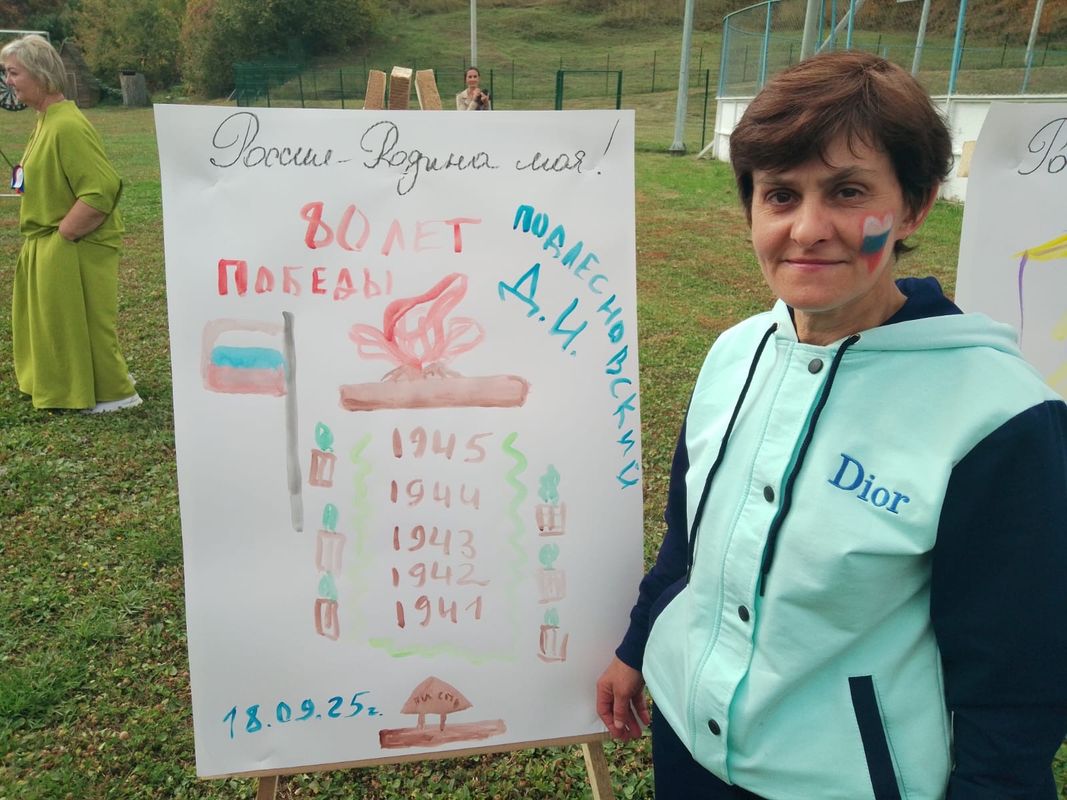 Россия-Родина моя!
80 ЛЕТ
ПОБЕДЫ
ПОДЛЕСНОВСКИЙ
Д.И.
1945
1944
1943
1942
1941
18.09.25г.
Dior